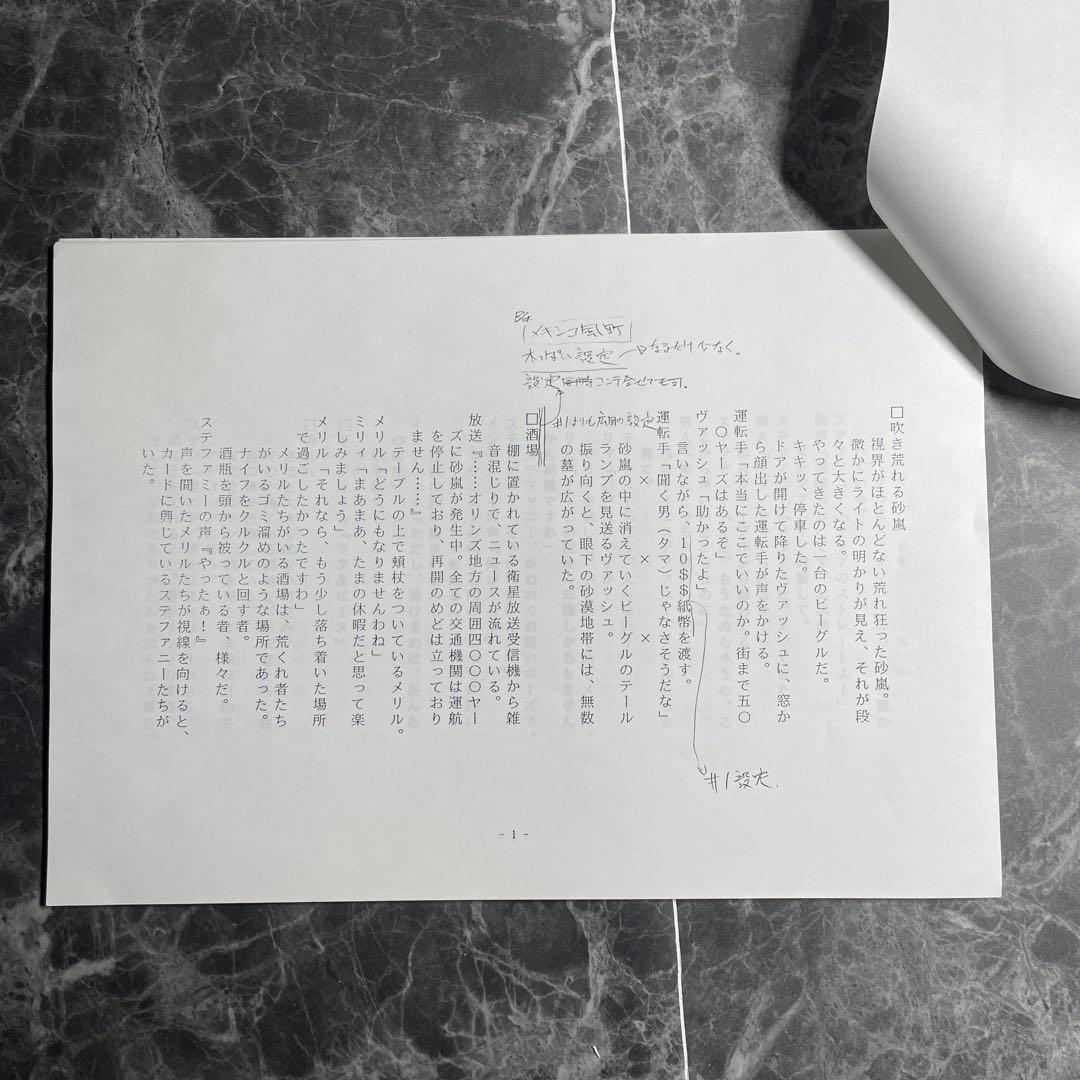 □吹き荒れる砂嵐
視界がほとんどない荒れ狂った砂嵐。
微かにライトの明かりが見え、それが段
々と大きくなる。
やってきたのは一台のビーグルだ。
キキッ、停車した。
ドアが開けて降りたヴァッシュに、窓か
ら顔出した運転手が声をかける。
運転手「本当にここでいいのか。街まで五〇
〇ヤーズはあるぞ」
ヴァッシュ「助かったよ」
言いながら、10$$紙幣を渡す。
運転手「聞く男(タマ)じゃなさそうだな」
× × ×
砂嵐の中に消えていくビーグルのテール
ランプを見送るヴァッシュ。
振り向くと、眼下の砂漠地帯には、無数
の墓が広がっていた。
□酒場
棚に置かれている衛星放送受信機から雑
音混じりで、ニュースが流れている。
放送『……オリンズ地方の周囲四〇〇〇ヤー
ズに砂嵐が発生中。全ての交通機関は運航
を停止しており、再開のめどは立っており
ません……』
テーブルの上で頬杖をついているメリル。
メリル「どうにもなりませんわね」
ミリィ「まあまあ、たまの休暇だと思って楽
しみましょう」
メリル「それなら、もう少し落ち着いた場所
で過ごしたかったですわ」
メリルたちがいる酒場は、荒くれ者たち
がいるゴミ溜めのような場所であった。
ナイフをクルクルと回す者。
酒瓶を頭から被っている者、様々だ。
ステファミーの声『やったぁ!』
声を聞いたメリルたちが視線を向けると、
カードに興じているステファニーたちが
いた。
BG.
メキシコ風町
木っぽい設定
なるだけ少なく。
設定同時コンテ合せでも可。
#1よりも広目の設定
#1設定.
- 1 -